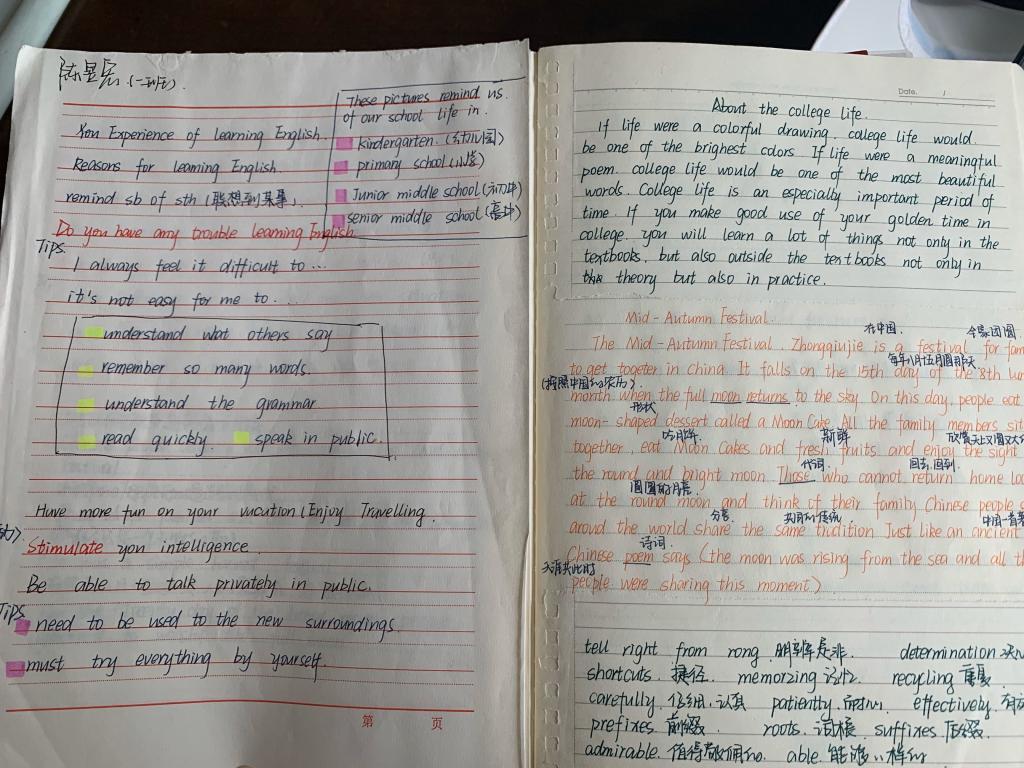 陈昱宏(一班)
You Experience of learning English.
Reasons for learning English.
remind sb of sth (联想到某事).
Do you have any trouble learning English.
These pictures remind us
of our school life in.
kindergarten. (幼儿园)
primary school (小学)
Junior middle school (初中)
senior middle school (高中)
Tips.
I always feel it difficult to...
it's not easy for me to...
understand wat others say
remember so many words.
understand the grammar
read quickly. speak in public.
Have more fun on your vacation (Enjoy Travelling.
Stimulate you intelligence.
Be able to talk privately in public.
Tips
need to be used to the new surroundings.
must try everything by yourself.
第 页
Date. /
About the college life.
If life were a colorful drawing. college life would
be one of the brightest colors If life were a meaningful
poem. college life would be one of the most beautiful
words. College life is an especially important period of
time. If you make good use of your golden time in
college. you will learn a lot of things not only in the
textbooks, but also outside the textbooks not only in
the theory but also in practice.
Mid-Autumn Festival.
在中国. 全家团圆
The Mid-Autumn Festival. Zhongqiujie is a festival for fam
每年八月十五月圆那天
to get togeter in china. It falls on the 15th day of the 8th lun
(按照中国的农历).
month when the full moon returns to the sky. On this day, people eat
形状
moon-shaped dessert called a Moon Cake. All the family members sit
吃月饼. 新鲜
together, eat Moon Cakes and fresh fruits and enjoy the sight
代词. 回去, 回到.
the round and bright moon. Those who cannot return home loo
圆圆的月亮
at the round moon and think of their family Chinese people
分享 共同的传统
around the world share the same tradition Just like an ancient
诗词.
Chinese poem says (the moon was rising from the sea and all th
天涯共此时
people were sharing this moment)
tell right from rong. 明辨是非. determination
shortcuts. 捷径. memorzing 记忆. recycling 重复
carefully. 仔细, 认真 patiently. 耐心. effectively.
prefixes 前缀. roots. 词根. suffixes 后缀.
admirable. 值得敬佩的. able. 能够..样的